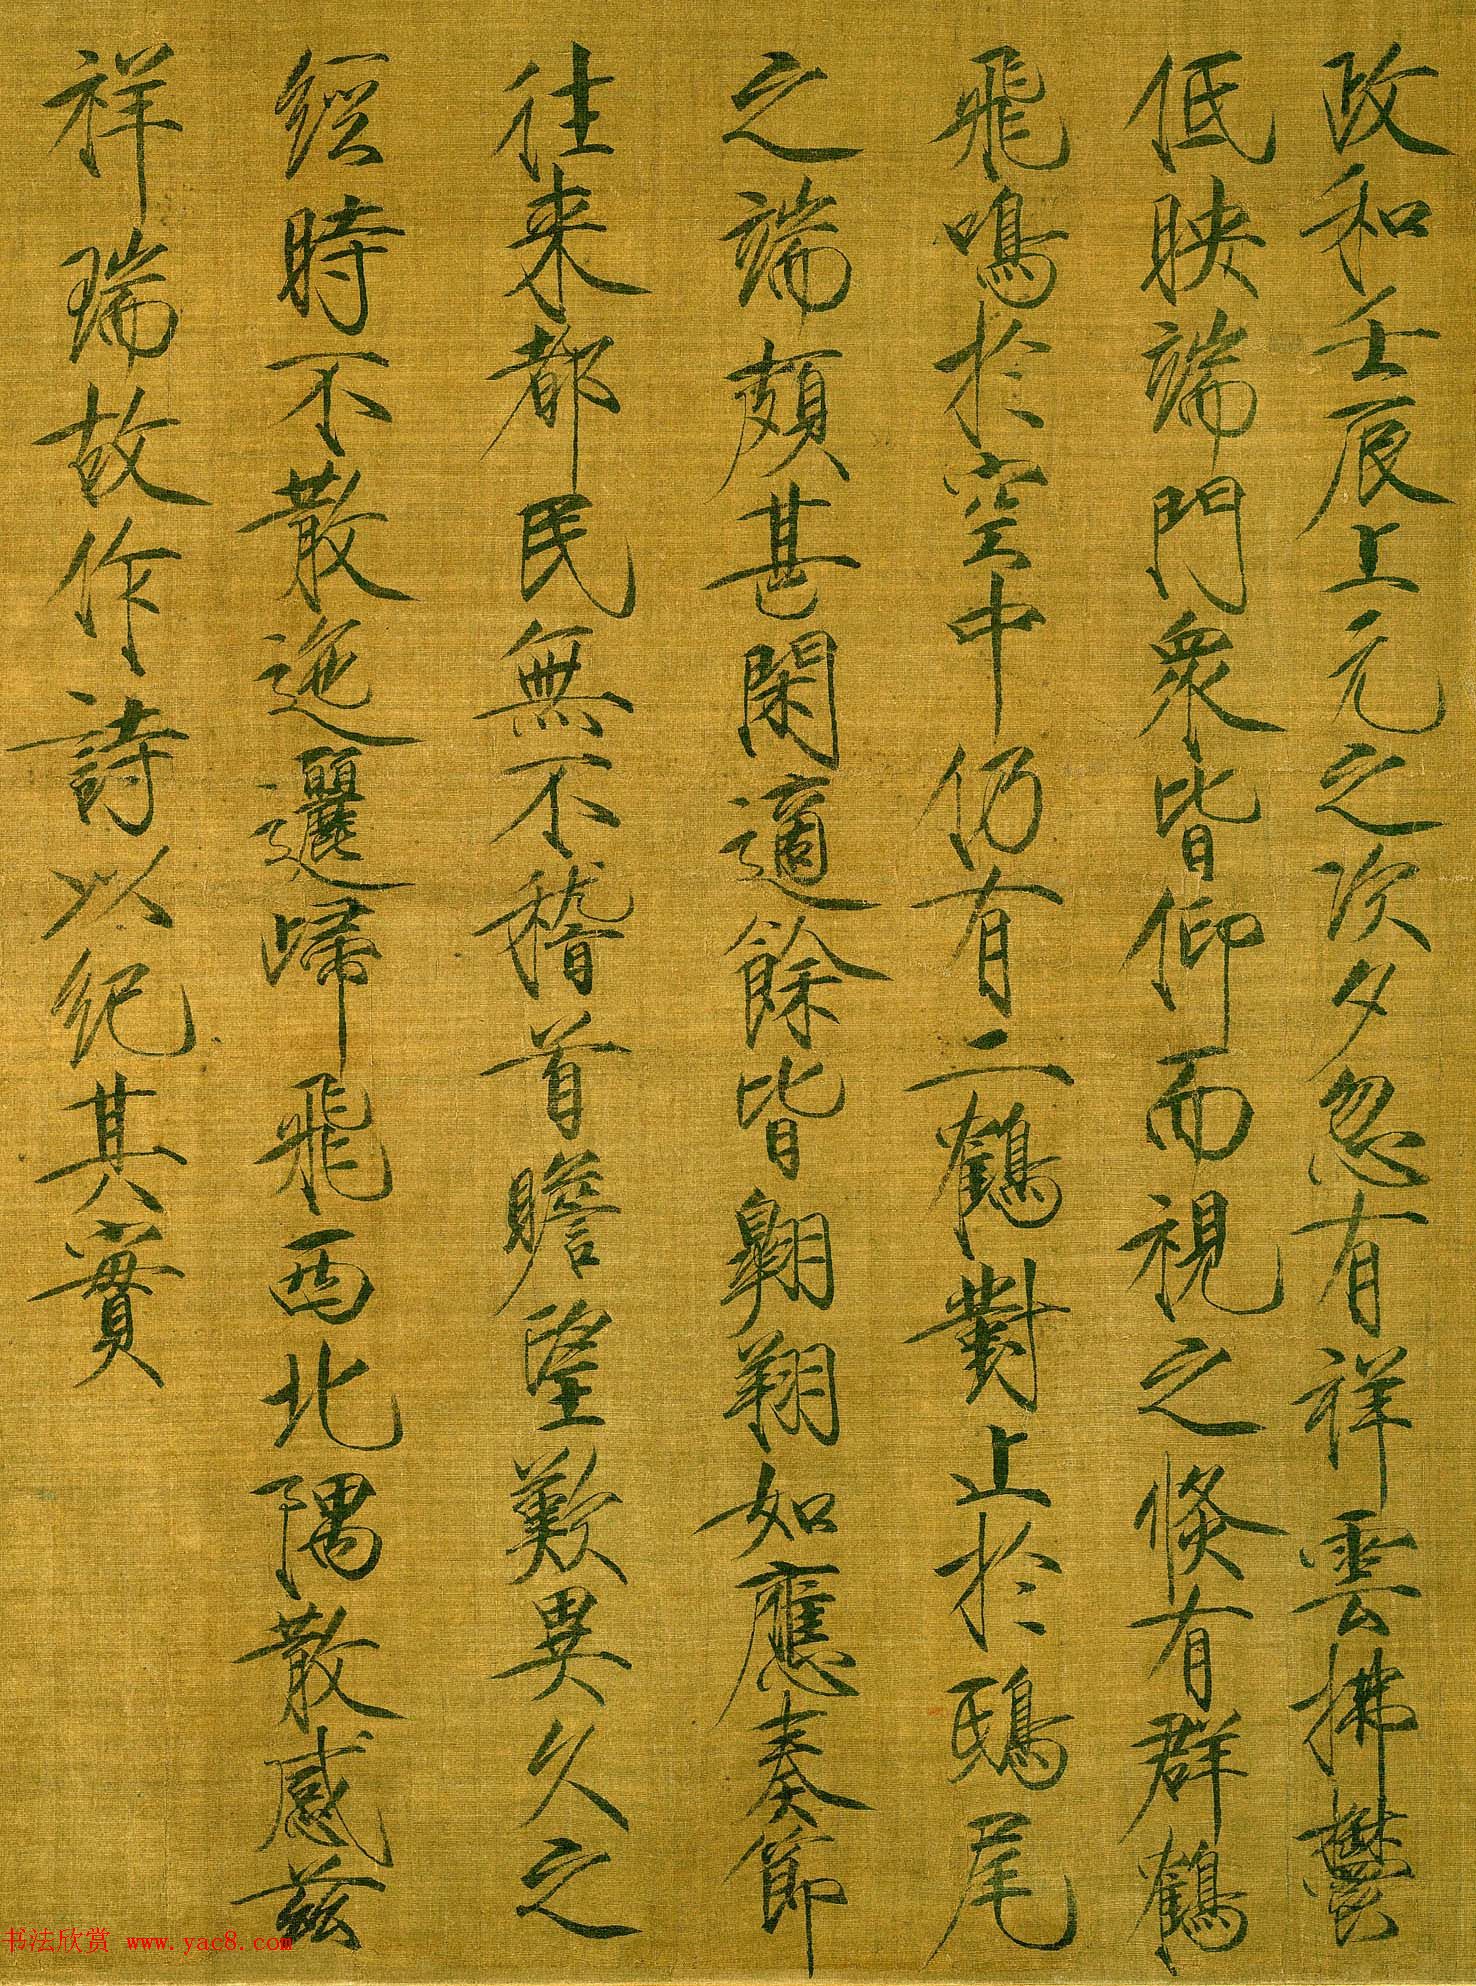 政和壬辰上元之次夕忽有祥雲拂鬱
低映端門衆皆仰而視之倏有群鶴
飛鳴於空中仍有二鶴對止於鴟尾
之端頗甚閑適餘皆翱翔如應奏節
往来都民無不稽首瞻望歎異久之
經時不散迤邐歸飛西北隅散感兹
祥瑞故作詩以紀其實
书法欣赏 www.yac8.com